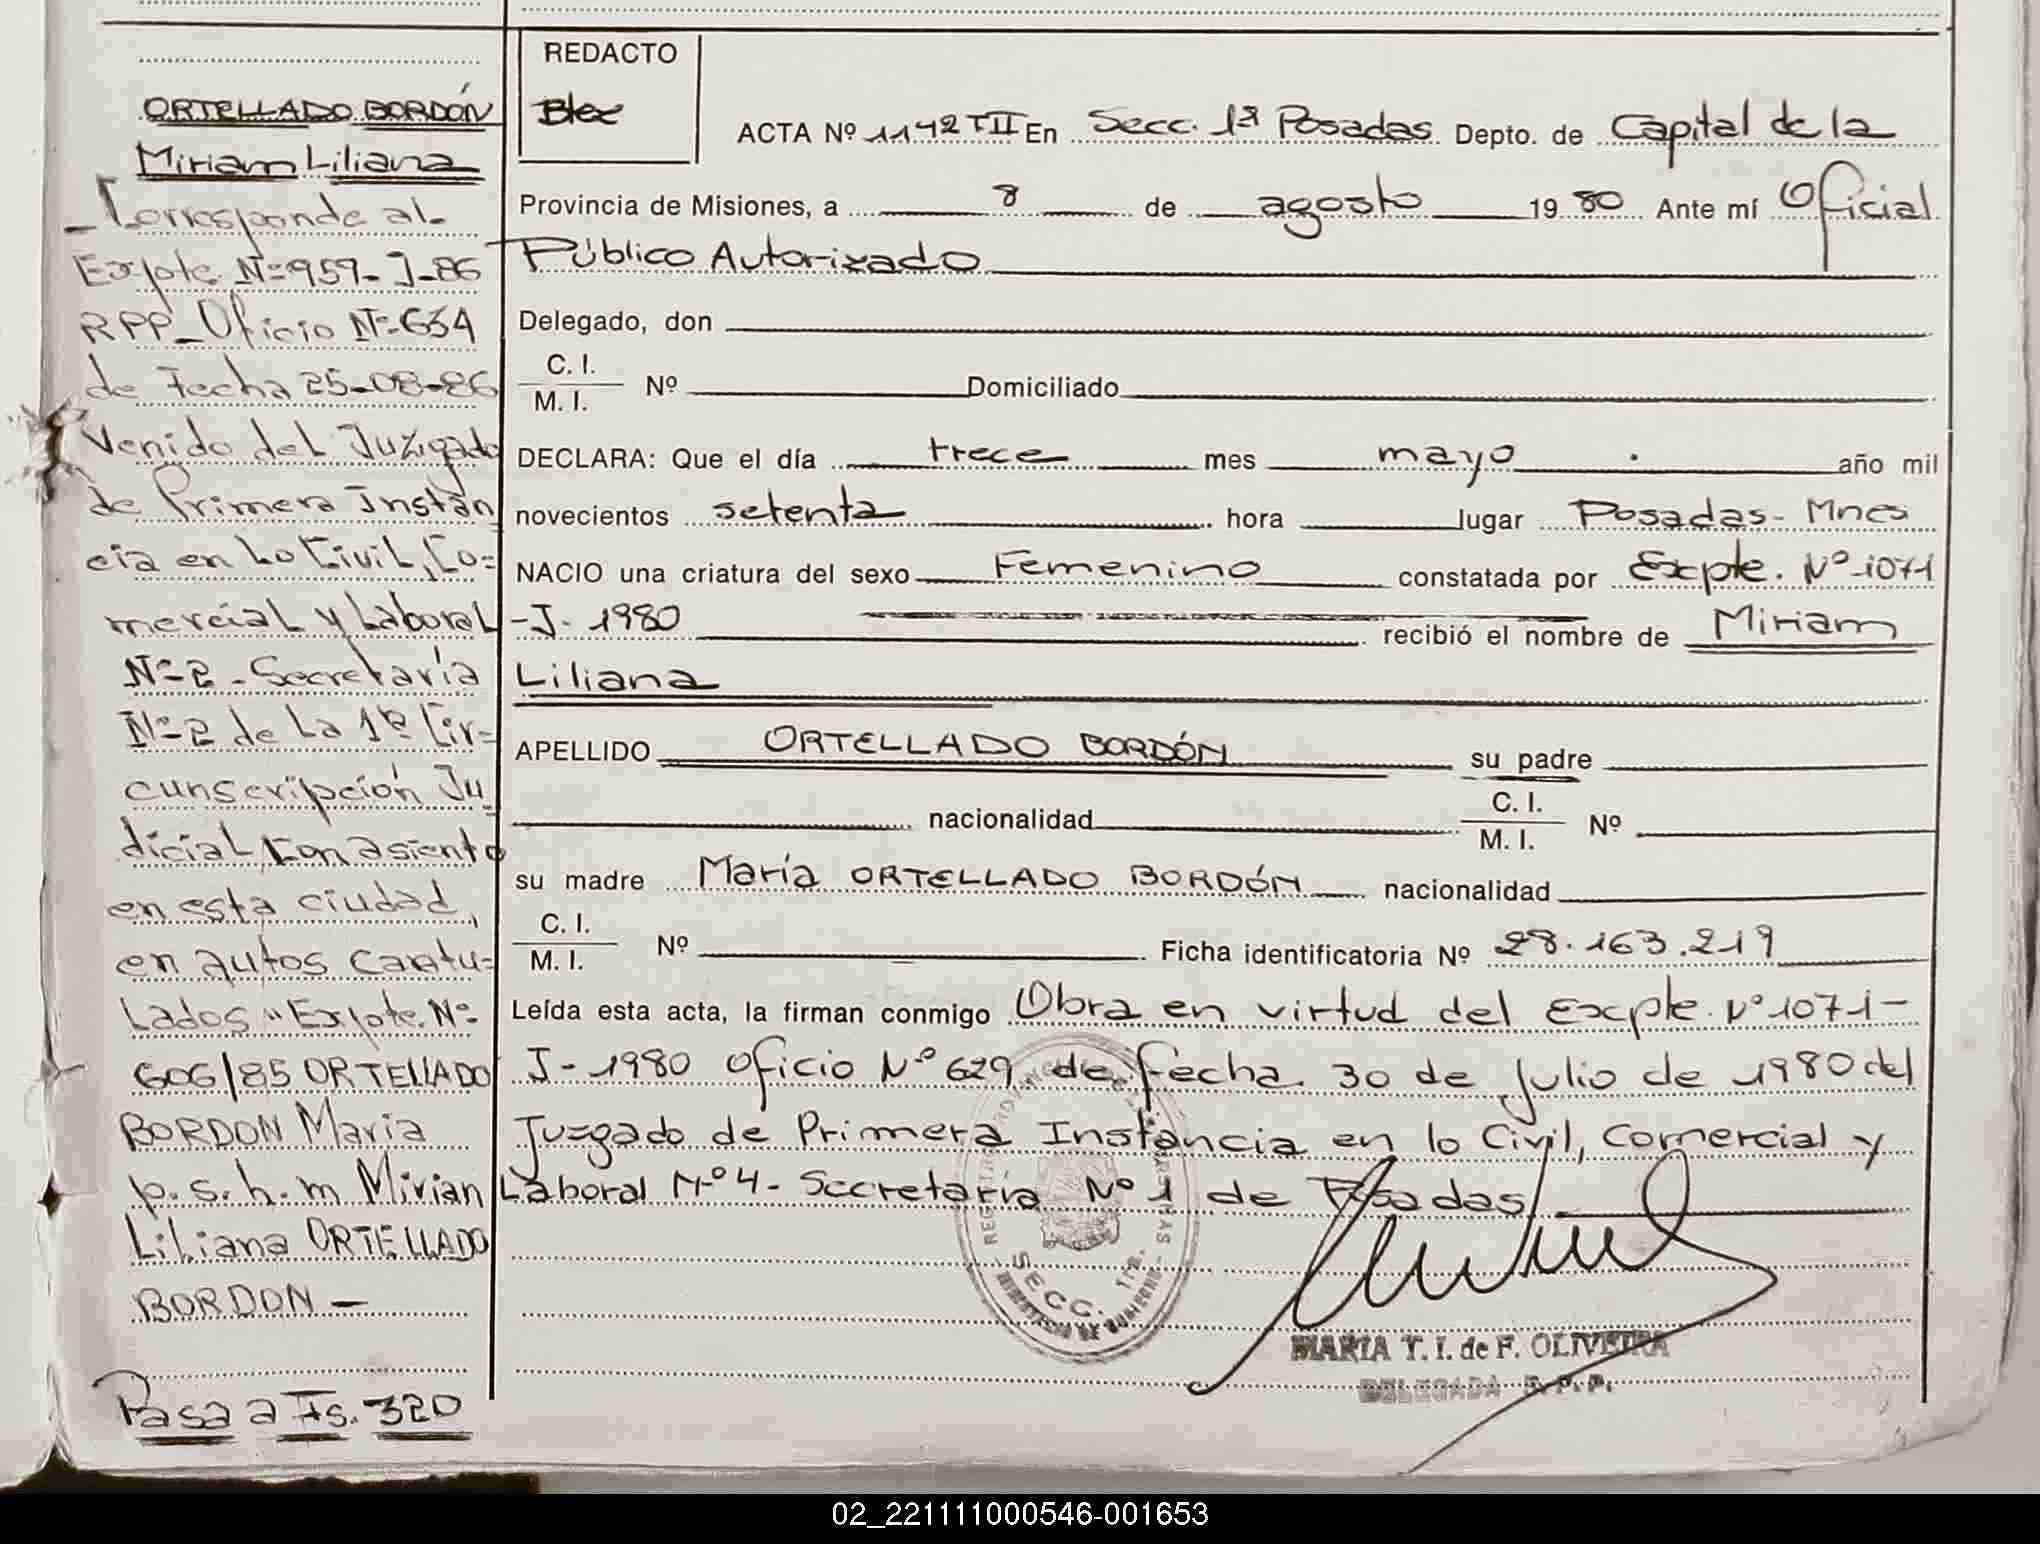 ORTELLADO BORDÓN
Miriam Liliana
Corresponde al
Expte. Nº 959-J-86
RPP_Oficio Nº 634
de Fecha 25-08-86
Venido del Juzgado
de Primera Instan
cia en Lo Civil, Co=
mercial y Laboral
Nº-2-Secretaría
Nº-2 de La 1ª Cir=
cunscripción Ju
dicial Con asiento
en esta ciudad,
en autos caratu=
Lados "Expte. Nº
606/85 ORTELLADO
BORDON Maria
p.s.h.m Mirian
Liliana ORTELLADO
BORDON -
Pasa a Fs. 320
REDACTO
ACTA Nº 1142 TII En Secc. 1ª Posadas Depto. de Capital de la
Provincia de Misiones, a 8 de agosto 19 80 Ante mí Oficial
Público Autorizado
Delegado, don
C. I.
M. I. Nº Domiciliado
DECLARA: Que el día trece mes mayo año mil
novecientos setenta hora lugar Posadas- Mnes
NACIO una criatura del sexo Femenino constatada por Excpte. Nº 1071
-J- 1980 recibió el nombre de Miriam
Liliana
APELLIDO ORTELLADO BORDÓN su padre
nacionalidad C. I.
M. I. Nº
su madre María ORTELLADO BORDÓN nacionalidad
C. I.
M. I. Nº Ficha identificatoria Nº 28.163.219
Leída esta acta, la firman conmigo Obra en virtud del Excpte. Nº 1071-
J-1980 oficio Nº 629 de fecha 30 de Julio de 1980 del
Juzgado de Primera Instancia en lo Civil, Comercial y
Laboral Nº 4- Secretaría Nº 1 de Posadas
SECC. 1ra.
MARIA T. I. de F. OLIVEIRA
DELEGADA R.P.P.
02_221111000546-001653